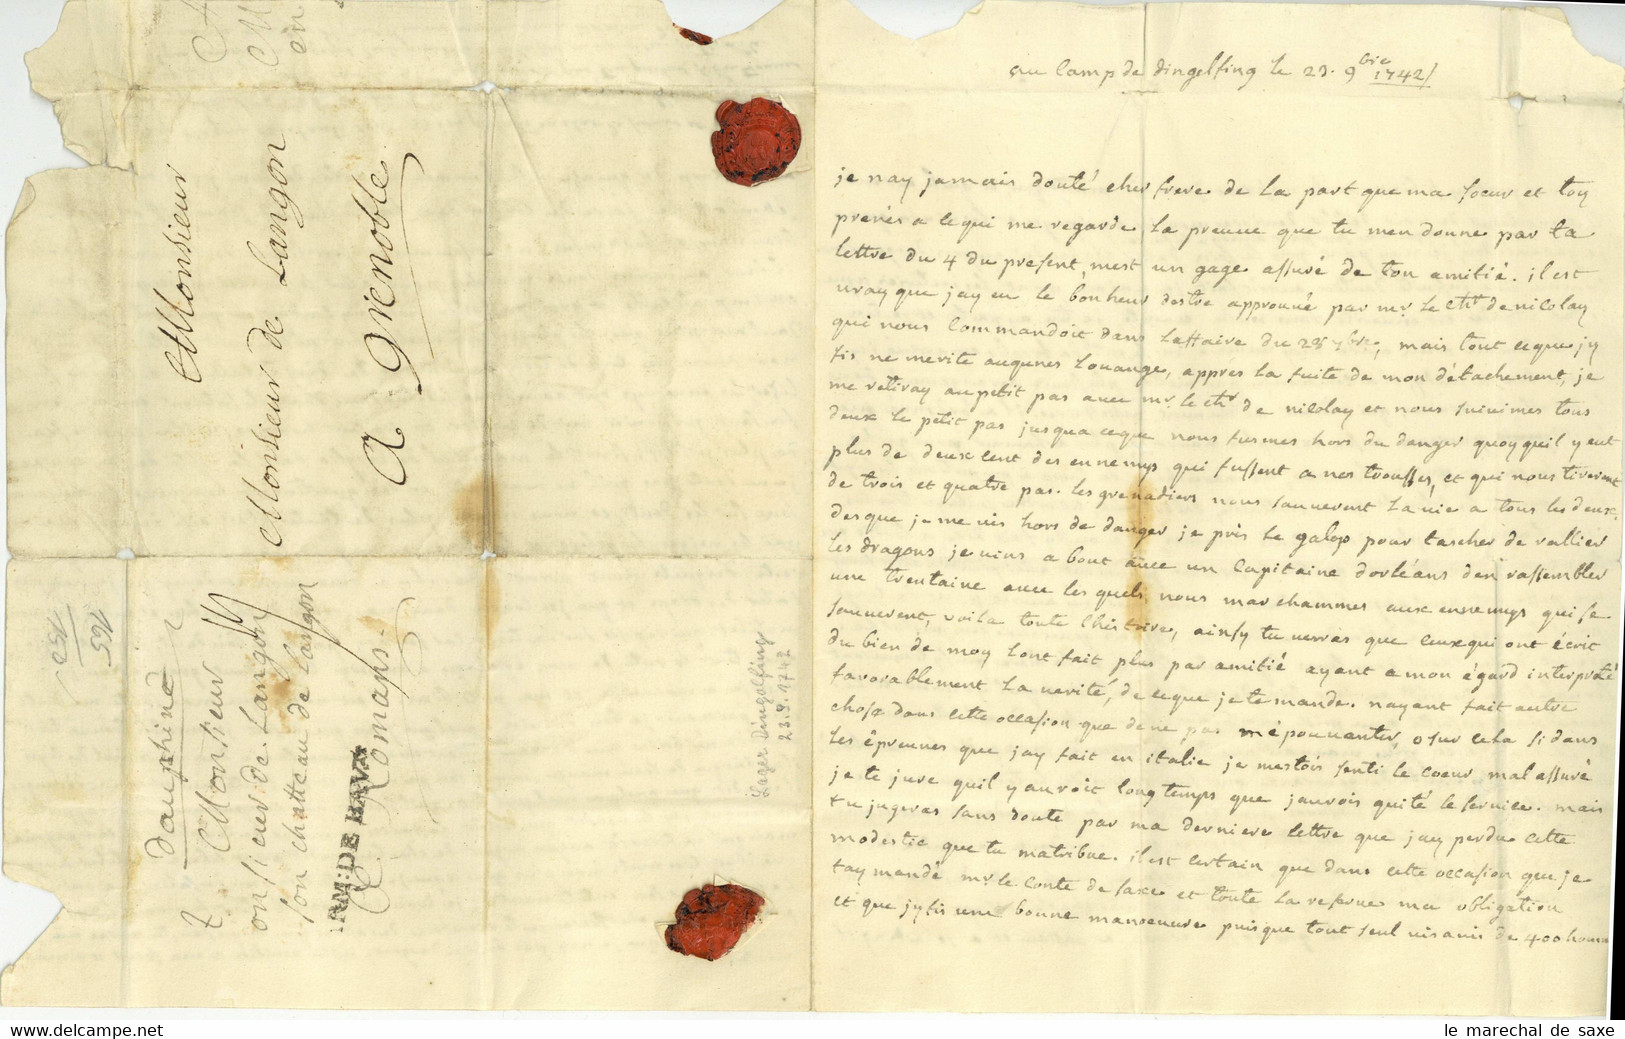 au Camp de dingelfing le 23. 9bre 1742
je nay jamais douté cher frere de la part que ma soeur et toy
prenés a ce qui me regarde la preuue que tu men donne par ta
lettre du 4 du present, mest un gage assuré de ton amitié. il est
uray que jay eu le bonheur destre approuué par mr. le chr de nicolay
qui nous Commandoit dans laffaire du 28 , mais tout ceque jy
fis ne merite auqunes louange, appres la fuite de mon détachement, je
me retiray au petit pas auec mr. le chr de nicolay et nous suiuimes tous
deux le petit pas jusqua ceque nous fusmes hors du danger quoy quil y eut
plus de deux cent des ennemys qui fussent a nos trousses, et qui nous tirerent
de trois et quatre pas. les grenadiers nous sauuerent la vie a tous les deux.
des que je me vis hors de danger je pris le galop pour tascher de rallier
les dragons je uins a bout auec un Capitaine dorléans den rassembler
une trentaine auec les quels nous marchammes aux ennemys qui se
sauuerent, voila toute lhistoire, ainsy tu uerras que ceux qui ont écrit
du bien de moy lont fait plus par amitié ayant a mon égard interprété
fauorablement la uerité, de ceque je te mande. nayant fait autre
chose dans cette occasion que de ne pas mépouuanter, o sur cela si dans
les épreuues que jay fait en italie je mestois senti le coeur mal assuré
je te jure quil y auroit longtemps que jaurois quité le seruice. mais
tu jugeras sans doute par ma derniere lettre que jay perdu cette
modestie que tu matribue. il est certain que dans cette occasion que je
tay mandé mr. le conte de saxe et toute la reserue ma obligation
et que jy fis une bonne manoeuure puisque tout seul uis a uis de 400 hom
Monsieur
Monsieur de Langon
A grenoble
dauphiné
Monsieur
onsieur de Langon
son chatteau de Langon
A Romans
ARM:DE BAVA
165
150
Lager Dingolfing
23.9.1742
le marechal de saxe